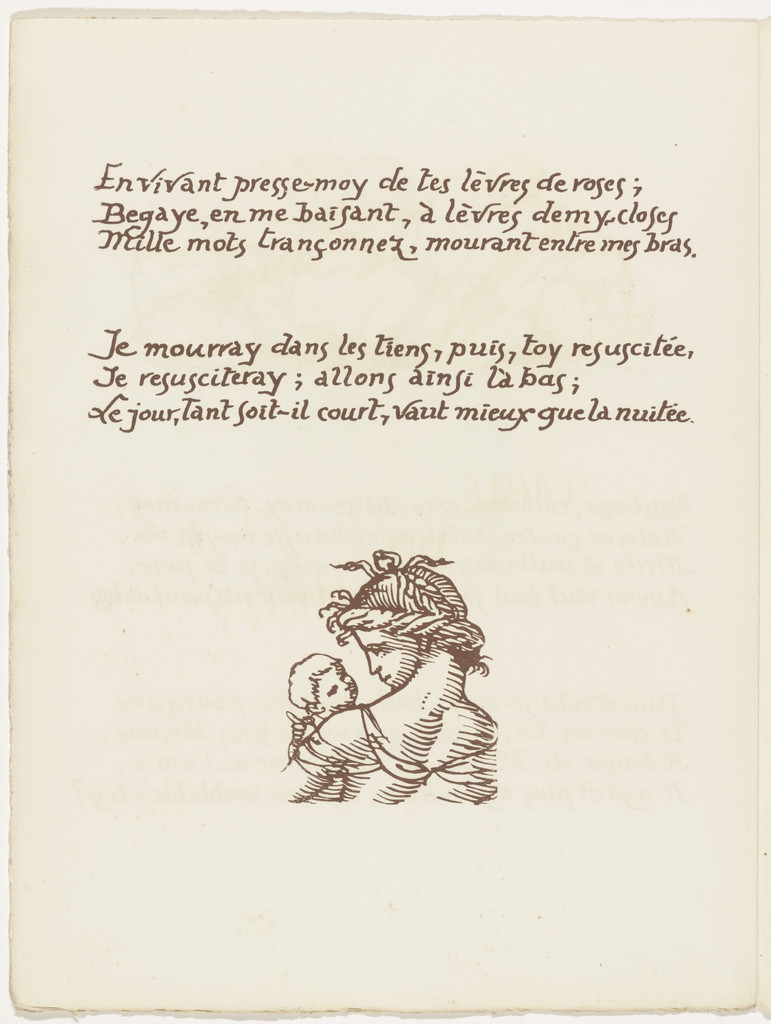 En vivant presse-moy de tes lèvres de roses ;
Begaye, en me baisant, à lèvres demy-closes
Mille mots trançonnez, mourant entre mes bras.
Je mourray dans les tiens, puis, toy resuscitée,
Je resusciteray ; allons ainsi là bas ;
Le jour, tant soit-il court, vaut mieux que la nuitée.